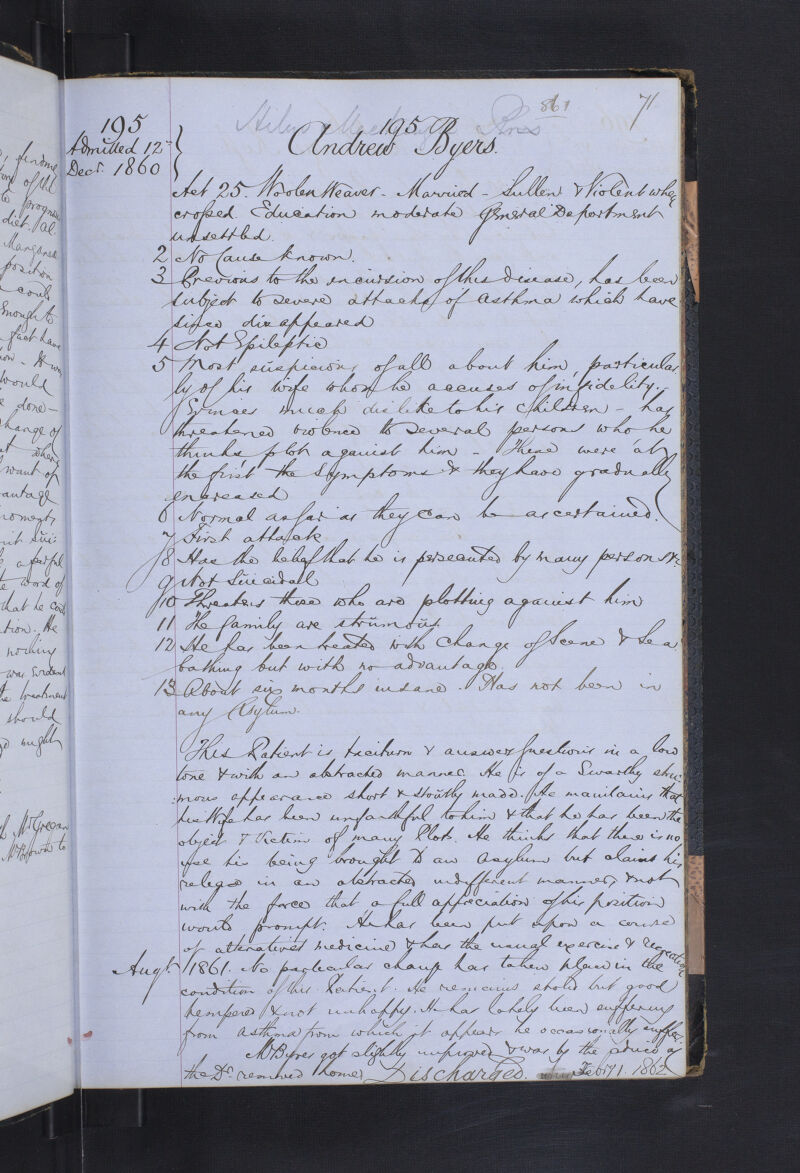 861 71
195
Admitted 12th
Decr. 1860
195
Andrew Byers.
Aet 25. Woolen Weaver - Married - Sullen & Violent when
crossed Education moderate General Department
unsettled.
2 No Cause known.
3 Previous to the incursion of this disease, has been
subject to severe attacks of asthma which have
since disappeared
4 Not Epileptic
5 Most suspicious of all about him, particular
ly of his wife whom he accuses of infidelity -
Evinces much dislike to his children - has
threatened violence to several persons who he
thinks plot against him - These were at
the first the symptoms & they have gradually
encreased
6 Normal as far as they can be ascertained.
7 First attack
8 Has the belief that he is persecuted by many persons &c
9 Not Suicidal
10 Threatens those who are plotting against him
11 The family are strumous
12 He has been treated with change of scene & Sea
bathing but with no advantage.
13 About six months insane. Has not been in
any Asylum.
This Patient is taciturn & answers questions in a low
tone & with an abstracted manner He is of a Swarthy stru-
mous appearance short & stoutly made. He maintains that
his Wife has been unfaithful to him & that he has been the
object & Victim of many Plots. He thinks that there is no
use his being brought to an asylum but claims his
release in an abstracted indifferent manner, & not
with the force that a full appreciation of his position
would prompt. He has been put upon a course
of alterative medicine & has the usual exercise & recreation
Augt 1861. No particular change has taken place in the
condition of this Patient. He remains stolid but good
tempered & not unhappy. He has lately been suffering
from asthma from which it appears he occasionally suffers.
Mr Byres got slightly improved & was by the advice of
the Dr. removed home Discharged. Feby 1. 1862